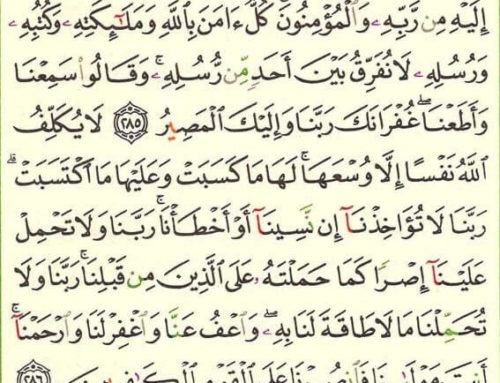 إِلَيْهِ مِن رَّبِّهِۦ وَٱلْمُؤْمِنُونَ كُلٌّ ءَامَنَ بِٱللَّهِ وَمَلَٰٓئِكَتِهِۦ وَكُتُبِهِۦ
وَرُسُلِهِۦ لَا نُفَرِّقُ بَيْنَ أَحَدٍ مِّن رُّسُلِهِۦ ۚ وَقَالُوا۟ سَمِعْنَا
وَأَطَعْنَا ۖ غُفْرَانَكَ رَبَّنَا وَإِلَيْكَ ٱلْمَصِيرُ ٢٨٥ لَا يُكَلِّفُ
ٱللَّهُ نَفْسًا إِلَّا وُسْعَهَا ۚ لَهَا مَا كَسَبَتْ وَعَلَيْهَا مَا ٱكْتَسَبَتْ ۗ
رَبَّنَا لَا تُؤَاخِذْنَآ إِن نَّسِينَآ أَوْ أَخْطَأْنَا ۚ رَبَّنَا وَلَا تَحْمِلْ
عَلَيْنَآ إِصْرًا كَمَا حَمَلْتَهُۥ عَلَى ٱلَّذِينَ مِن قَبْلِنَا ۚ رَبَّنَا وَلَا
تُحَمِّلْنَا مَا لَا طَاقَةَ لَنَا بِهِۦ ۖ وَٱعْفُ عَنَّا وَٱغْفِرْ لَنَا وَٱرْحَمْنَآ ۚ
أَنتَ مَوْلَىٰنَا فَٱنصُرْنَا عَلَى ٱلْقَوْمِ ٱلْكَٰفِرِينَ ٢٨٦